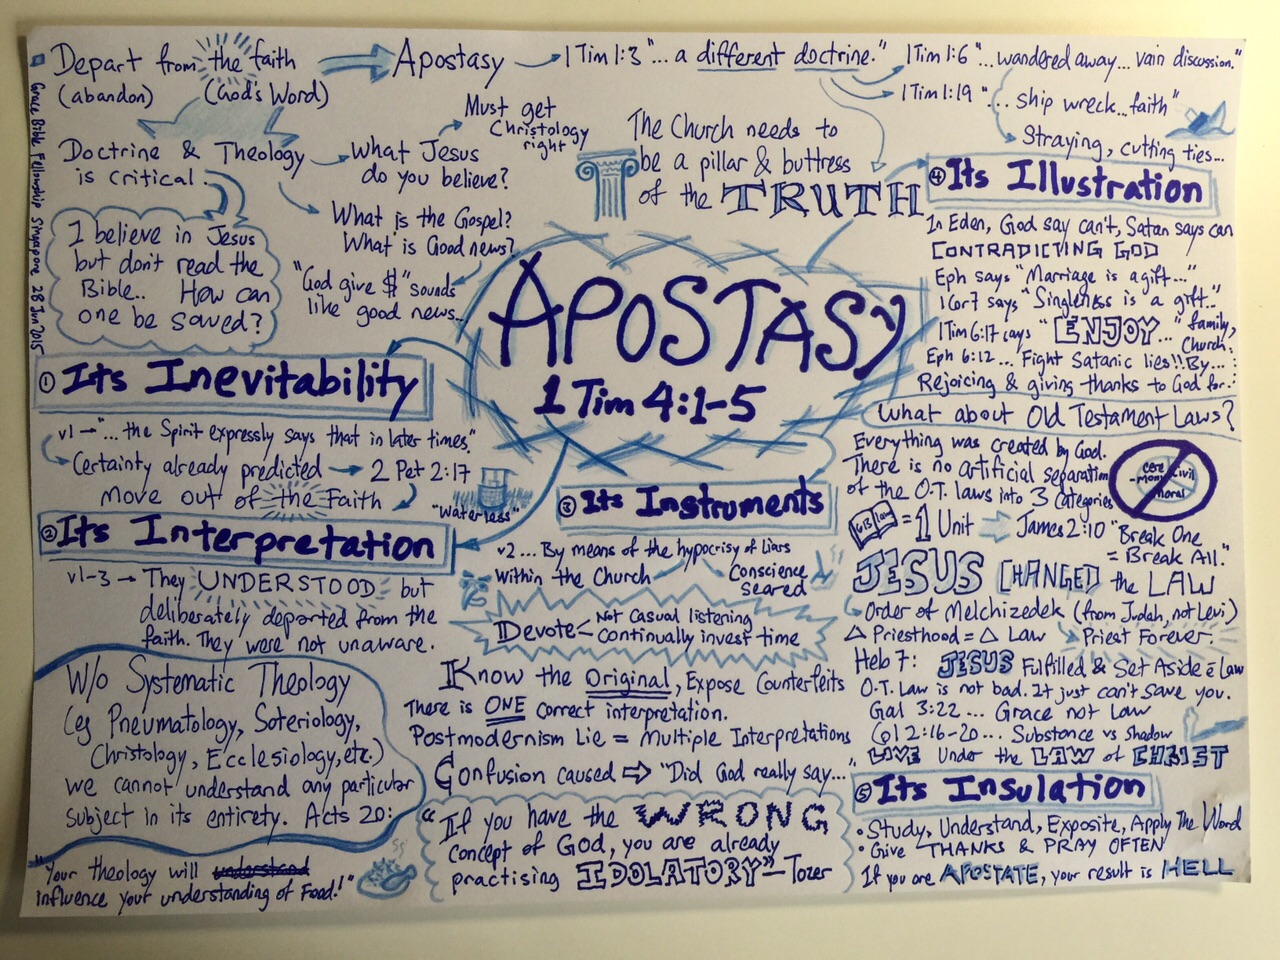 Grace Bible Fellowship Singapore 28 Jun 2015
Depart from the faith
(abandon) (God's Word)
Apostasy
1 Tim 1:3 "... a different doctrine."
1 Tim 1:6 "...wandered away... vain discussion."
1 Tim 1:19 "... ship wreck...faith"
Straying, cutting ties...
Doctrine & Theology
is critical.
What Jesus
do you believe?
Must get
Christology
right
What is the Gospel?
What is Good news?
"God give $" sounds
like good news...
I believe in Jesus
but don't read the
Bible.. How can
one be saved?
The Church needs to
be a pillar & buttress
of the TRUTH
APOSTASY
1 Tim 4:1-5
① Its Inevitability
v1 → "... the Spirit expressly says that in later times"
Certainty already predicted → 2 Pet 2:17
move out of the Faith
"Waterless"
② Its Interpretation
v1-3 → They UNDERSTOOD but
deliberately departed from the
faith. They were not unaware.
W/o Systematic Theology
(eg Pneumatology, Soteriology,
Christology, Ecclesiology, etc.)
we cannot understand any particular
subject in its entirety. Acts 20:
"Your theology will understand
influence your understanding of Food!"
③ Its Instruments
v2 ... By means of the hypocrisy of Liars
within the Church
Conscience
seared
Devote
Not Casual listening
Continually invest time
Know the Original, Expose Counterfeits
There is ONE correct interpretation.
Postmodernism Lie = Multiple Interpretations
Confusion caused ⇒ "Did God really say..."
"If you have the WRONG
concept of God, you are already
practising IDOLATORY" - Tozer
④ Its Illustration
In Eden, God say can't, Satan says can
CONTRADICTING GOD
Eph says "Marriage is a gift..."
1 Cor 7 says "Singleness is a gift.."
1 Tim 6:17 says "ENJOY..." family,
Church..
Eph 6:12... Fight Satanic lies!! By...
Rejoicing & giving thanks to God for..
What about Old Testament Laws?
Everything was created by God.
There is no artificial separation
of the O.T. laws into 3 categories
Cere
-monial
Civil
Moral
613 law = 1 Unit ⇒ James 2:10 "Break One
= Break All."
JESUS CHANGED the LAW
Order of Melchizedek (from Judah, not Levi)
Δ Priesthood = Δ Law
Priest Forever.
Heb 7: JESUS Fulfilled & Set Aside ē Law
O.T. Law is not bad. It just can't save you.
Gal 3:22 ... Grace not Law
Col 2:16-20 ... Substance vs Shadow
LIVE Under the LAW of CHRIST
⑤ Its Insulation
• Study, Understand, Exposite, Apply The Word
• Give THANKS & PRAY OFTEN
If you are APOSTATE, your result is HELL